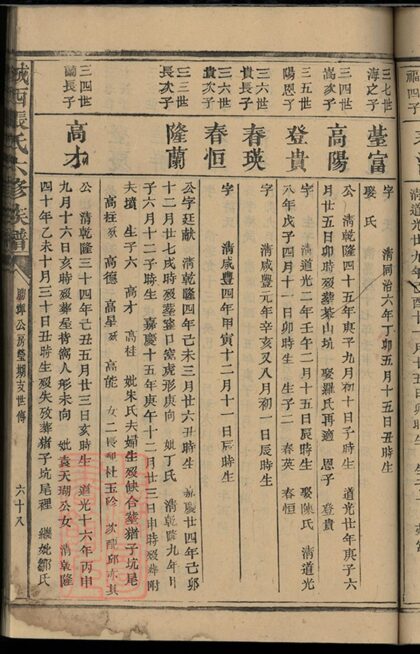 三七世
海之子
蓥富
字 清同治六年丁卯五月十五日丑時生
娶 氏
三四世
嵩次子
高陽
公 清乾隆四十五年庚子九月初十日子時生 道光廿年庚子六
月廿五日卯時歿葬葉山坑 娶羅氏再適 恩子 登貴
三五世
陽恩子
登貴
字 清道光二年壬午二月十五日辰時生 娶陳氏 清道光
八年戊子四月十一日卯時生 生子二 春英 春恒
三六世
貴長子
春瑛
字 清咸豐元年辛亥又八月初一日辰時生
三六世
貴次子
春恒
字 清咸豐四年甲寅十二月十一日辰時生
三三世
良次子
隆蘭
公字廷献 清乾隆四年己未三月廿六丑時生 嘉慶廿四年己卯
十二月廿七戌時歿葬 窰口窠虎形庚向 妣丁氏 清乾隆九年
子六月十二子時生 嘉慶十五年庚午十二月廿三日申時歿葬附
夫墳 生子六 高才 高桂 妣朱氏夫婦生歿候合葬猪子坑尾
高 高德 高星 高能 女二長 杜玉 次 邱
三四世
蘭長子
高才
公 清乾隆三十四年己丑五月廿三日亥時生 道光十六年丙申
九月十六日亥時歿葬 人形未向 妣袁天瑚公女 清乾隆
四十年乙未十月三十日丑時生歿失歿葬猪子坑尾裡 繼妣鄒氏
城西張氏六修族譜
公房 支世傳
六十八